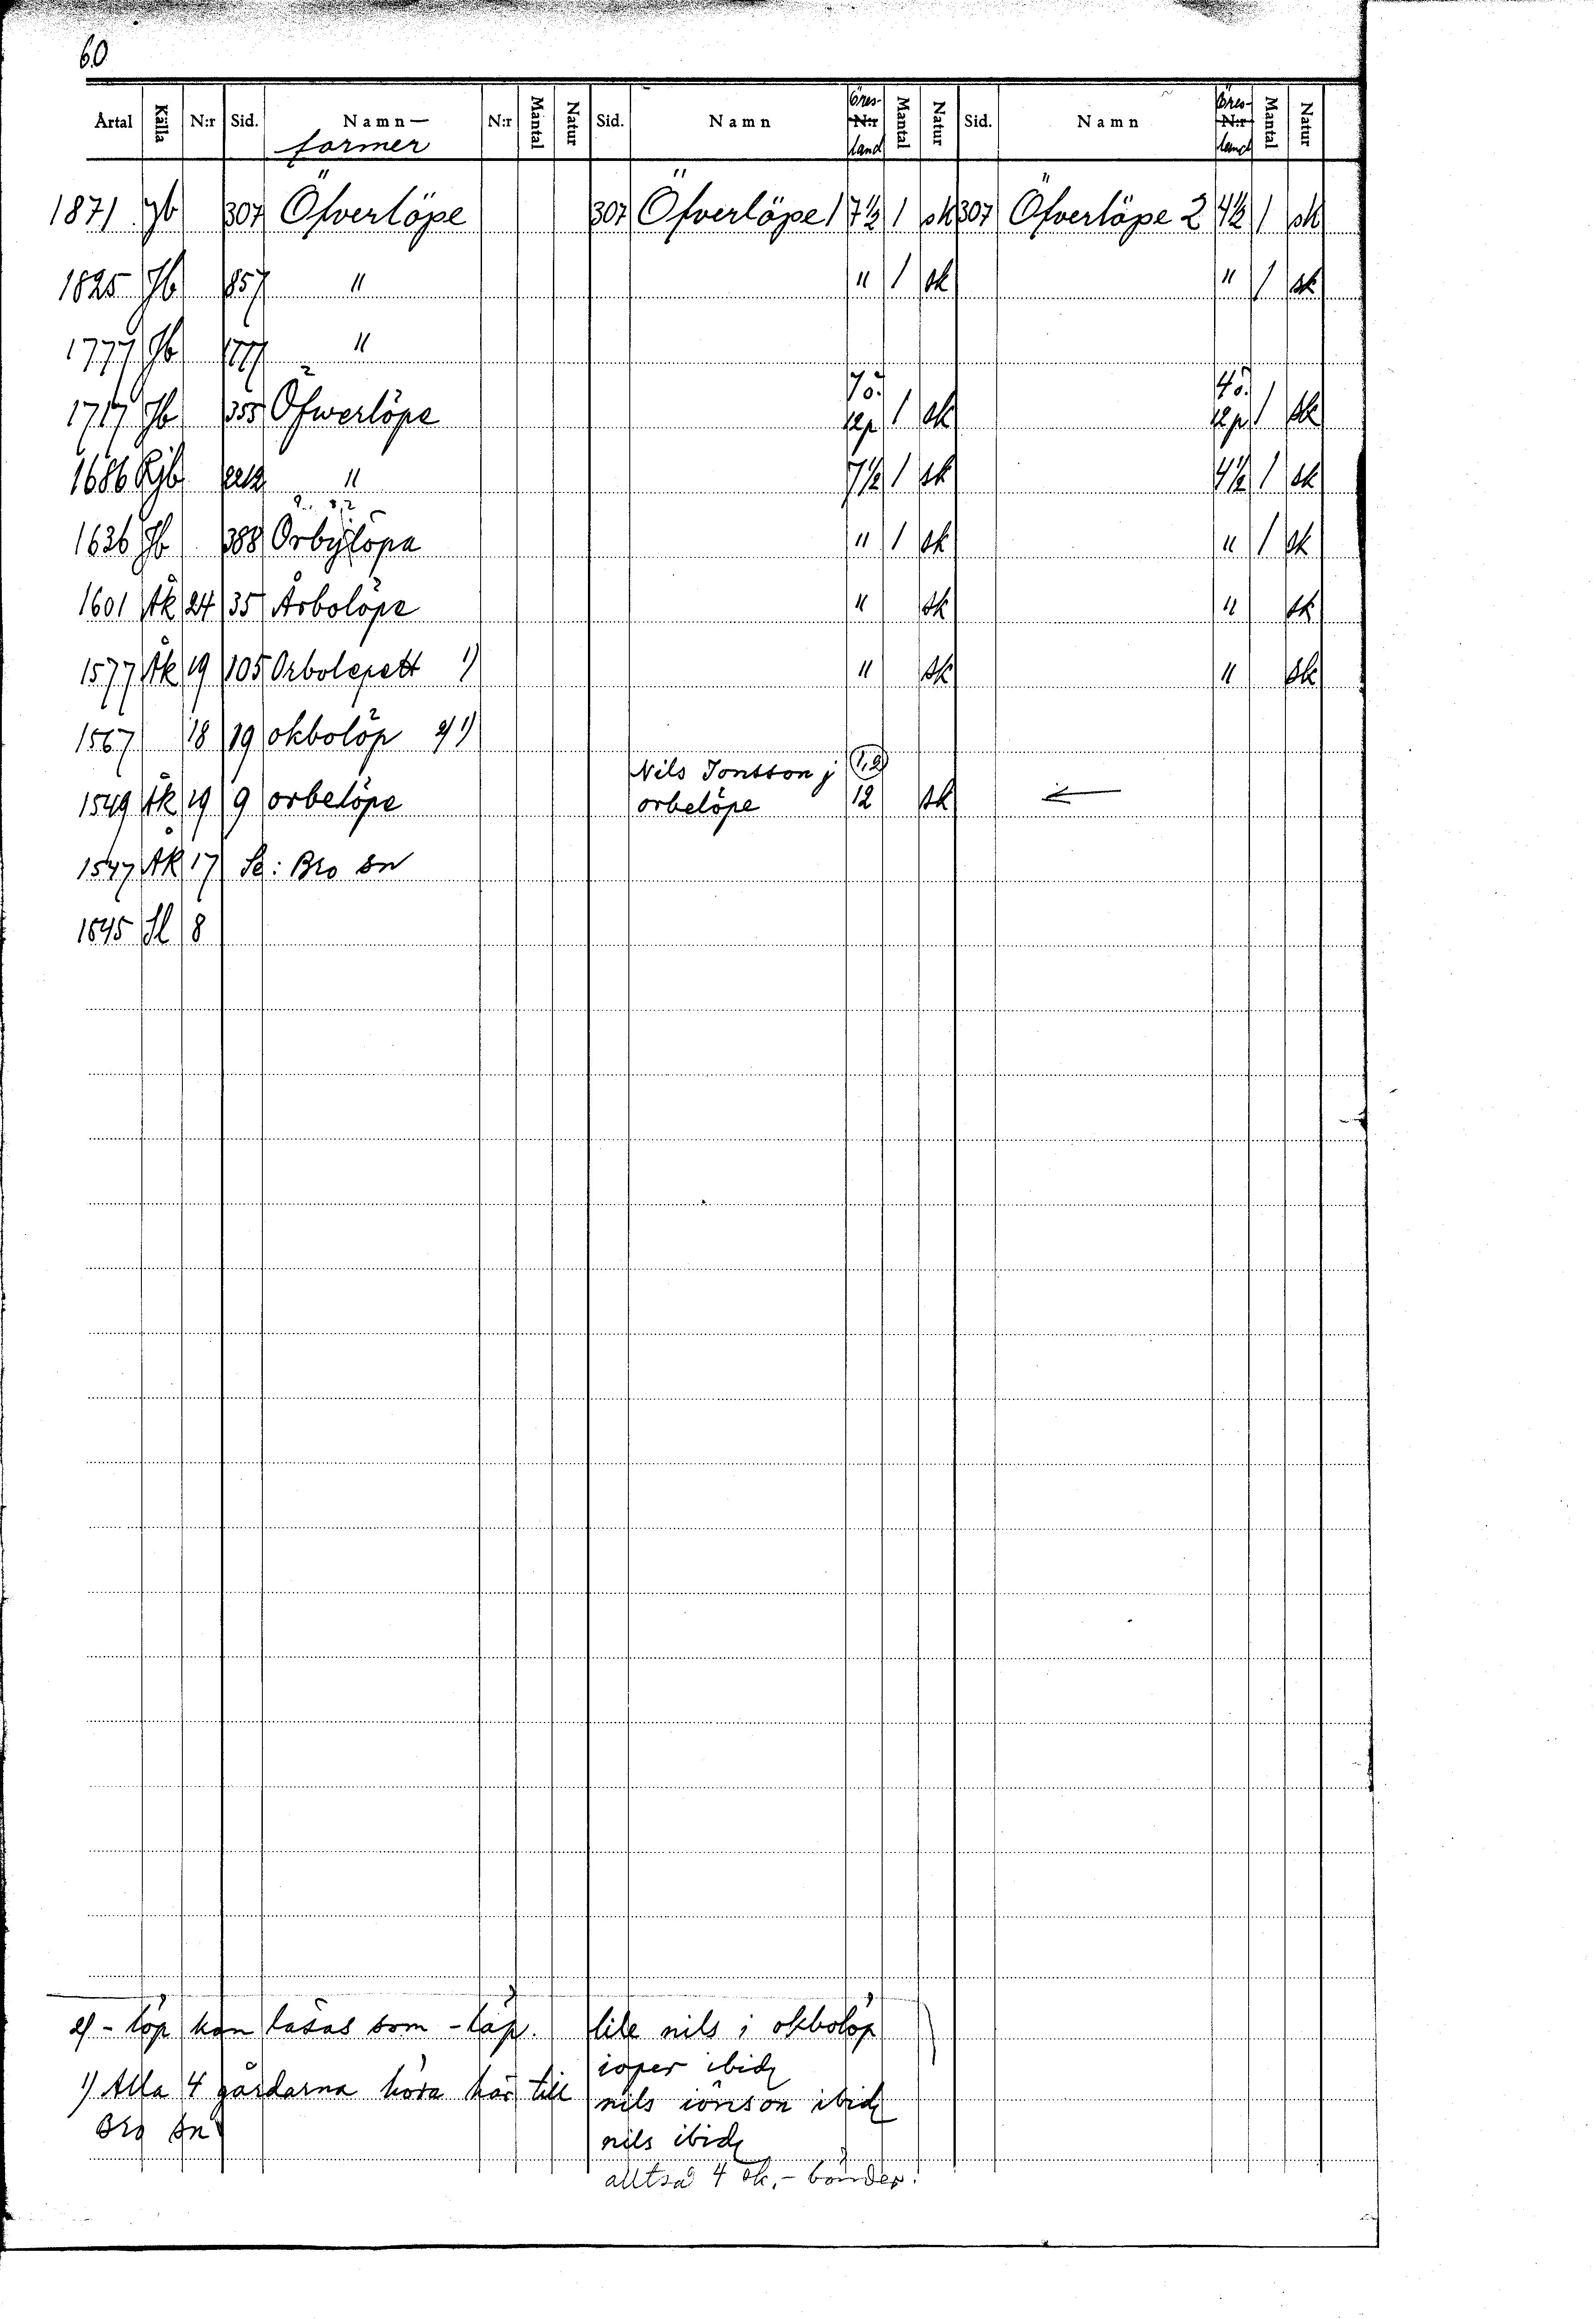 60
Årtal Källa N:r Sid. Namn— former N:r Mantal Natur Sid. Namn Öres- N:r land Mantal Natur Sid. Namn Öres- N:r land Mantal Natur
1871 Jb 307 Öfverlöpe 307 Öfverlöpe 1 7½ 1 sk 307 Öfverlöpe 2 4½ 1 sk
1825 Jb 857 " " 1 sk " 1 sk
1777 Jb 1777 "
1717 Jb 355 Öfwerlöpe 7ö. 12p 1 sk 4ö. 12p 1 sk
1686 Rjb 2212 " 7½ 1 sk 4½ 1 sk
1636 Jb 388 Örbylöpa " 1 sk " 1 sk
1601 Åk 24 35 Årbolöpe " sk " sk
1577 Åk 19 105 Orbolepett 1) " sk " sk
1567 18 19 okbolöp 2) 1)
Nils Jonsson j 1,2
1549 Åk 19 9 orbelöpe orbelöpe 12 sk ←
1547 Åk 17 Se: Bro sn
1545 Sl 8
2) -löp kan läsas som -läp.
1) Alla 4 gårdarna höra här till
Bro sn
lile nils i okbolöp
ioper ibid
nils iönson ibid
nils ibid
alltså 4 sk.- bönder.